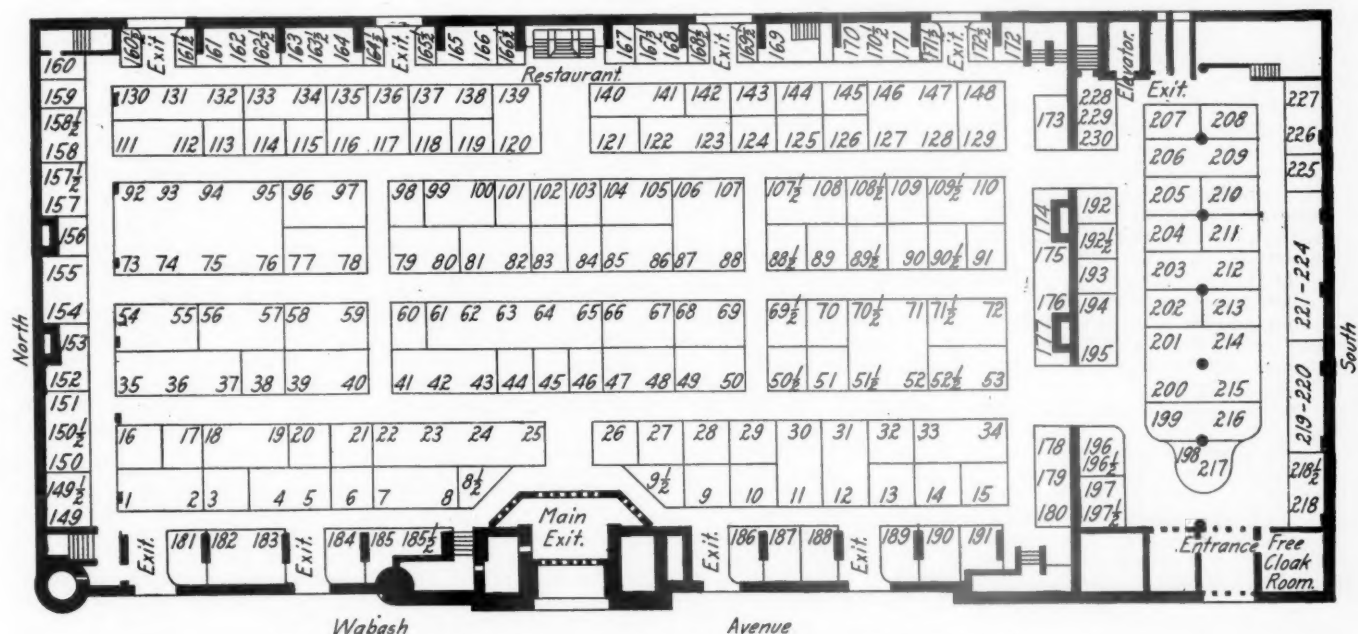 160½ Exit. 161½ 161 162 162½ 163 163½ 164 164½ Exit. 165½ 165 166 166½ 167 167½ 168 168½ Exit. 169½ 169 170 170½ 171 171½ Exit. 172½ 172
Elevator.
Restaurant.
Exit.
160
159
158½
158
157½
157
156
155
154
153
152
151
150½
150
149½
149
North
130 131 132 133 134 135 136 137 138 139
111 112 113 114 115 116 117 118 119 120
140 141 142 143 144 145 146 147 148
121 122 123 124 125 126 127 128 129
92 93 94 95 96 97
73 74 75 76 77 78
98 99 100 101 102 103 104 105 106 107
79 80 81 82 83 84 85 86 87 88
107½ 108 108½ 109 109½ 110
88½ 89 89½ 90 90½ 91
54 55 56 57 58 59
35 36 37 38 39 40
60 61 62 63 64 65 66 67 68 69
41 42 43 44 45 46 47 48 49 50
69½ 70 70½ 71 71½ 72
50½ 51 51½ 52 52½ 53
16 17 18 19 20 21 22 23 24 25
1 2 3 4 5 6 7 8 8½
26 27 28 29 30 31 32 33 34
9½ 9 10 11 12 13 14 15
173
174
175
176
177
178
179
180
228
229
230
192
192½
193
194
195
196
196½
197
197½
207 208
206 209
205 210
204 211
203 212
202 213
201 214
200 215
199 216
198 217
227
226
225
221-224
219-220
218½
218
South
Exit. 181 182 183 Exit. 184 185 185½
Main
Exit.
186 Exit. 187 188 Exit. 189 190 191
Entrance
Free
Cloak
Room.
Wabash Avenue